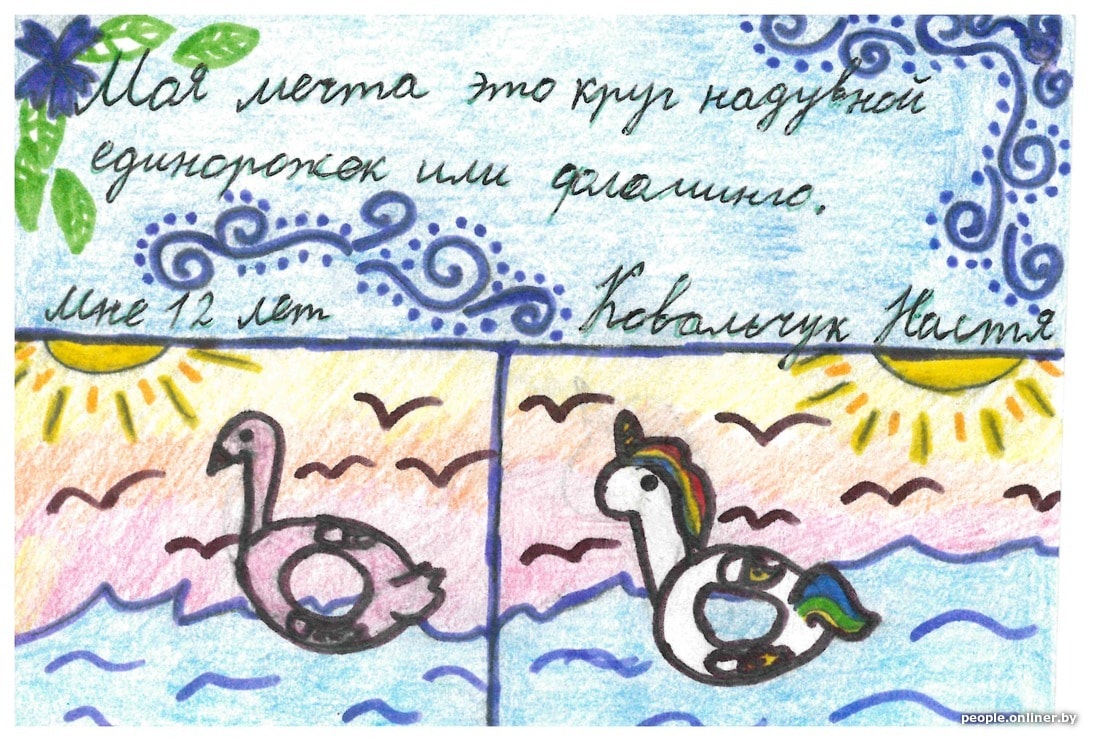 Моя мечта это круг надувной
единорожек или фламинго.
мне 12 лет
Ковальчук Настя
people.onliner.by